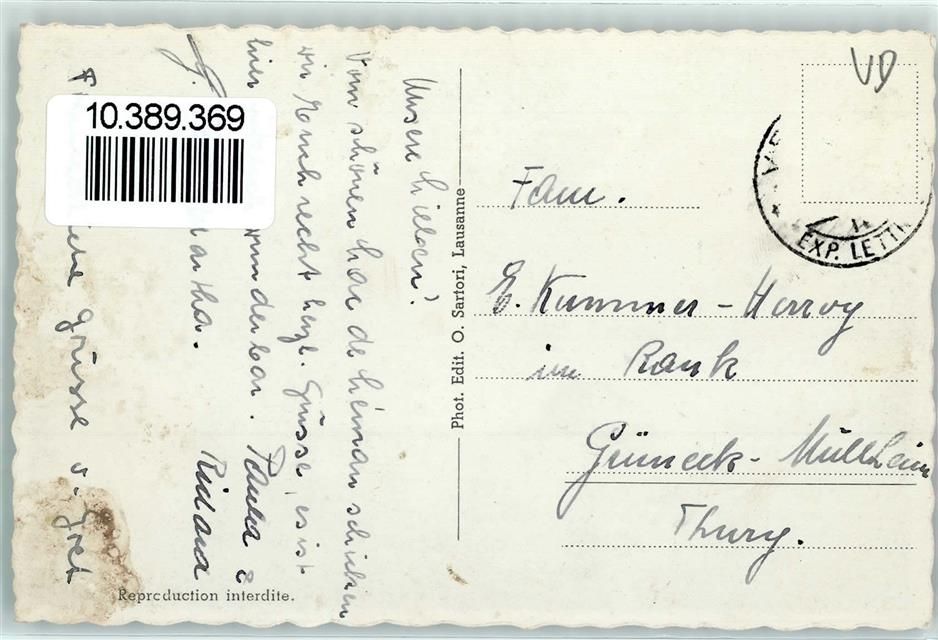 Unsere Lieben!
Vom schönen Lac de Léman schicken
wir Euch recht herzl. Grüsse, es ist
hier wunderbar. Paula &
Richard
Grüsse v. Gret
Phot. Edit. O. Sartori, Lausanne
Reproduction interdite.
Fam.
E. Kummer-Herzog
im Rank
Grüneck-Müllheim
Thurg.
VD
EXP. LETT
10.389.369